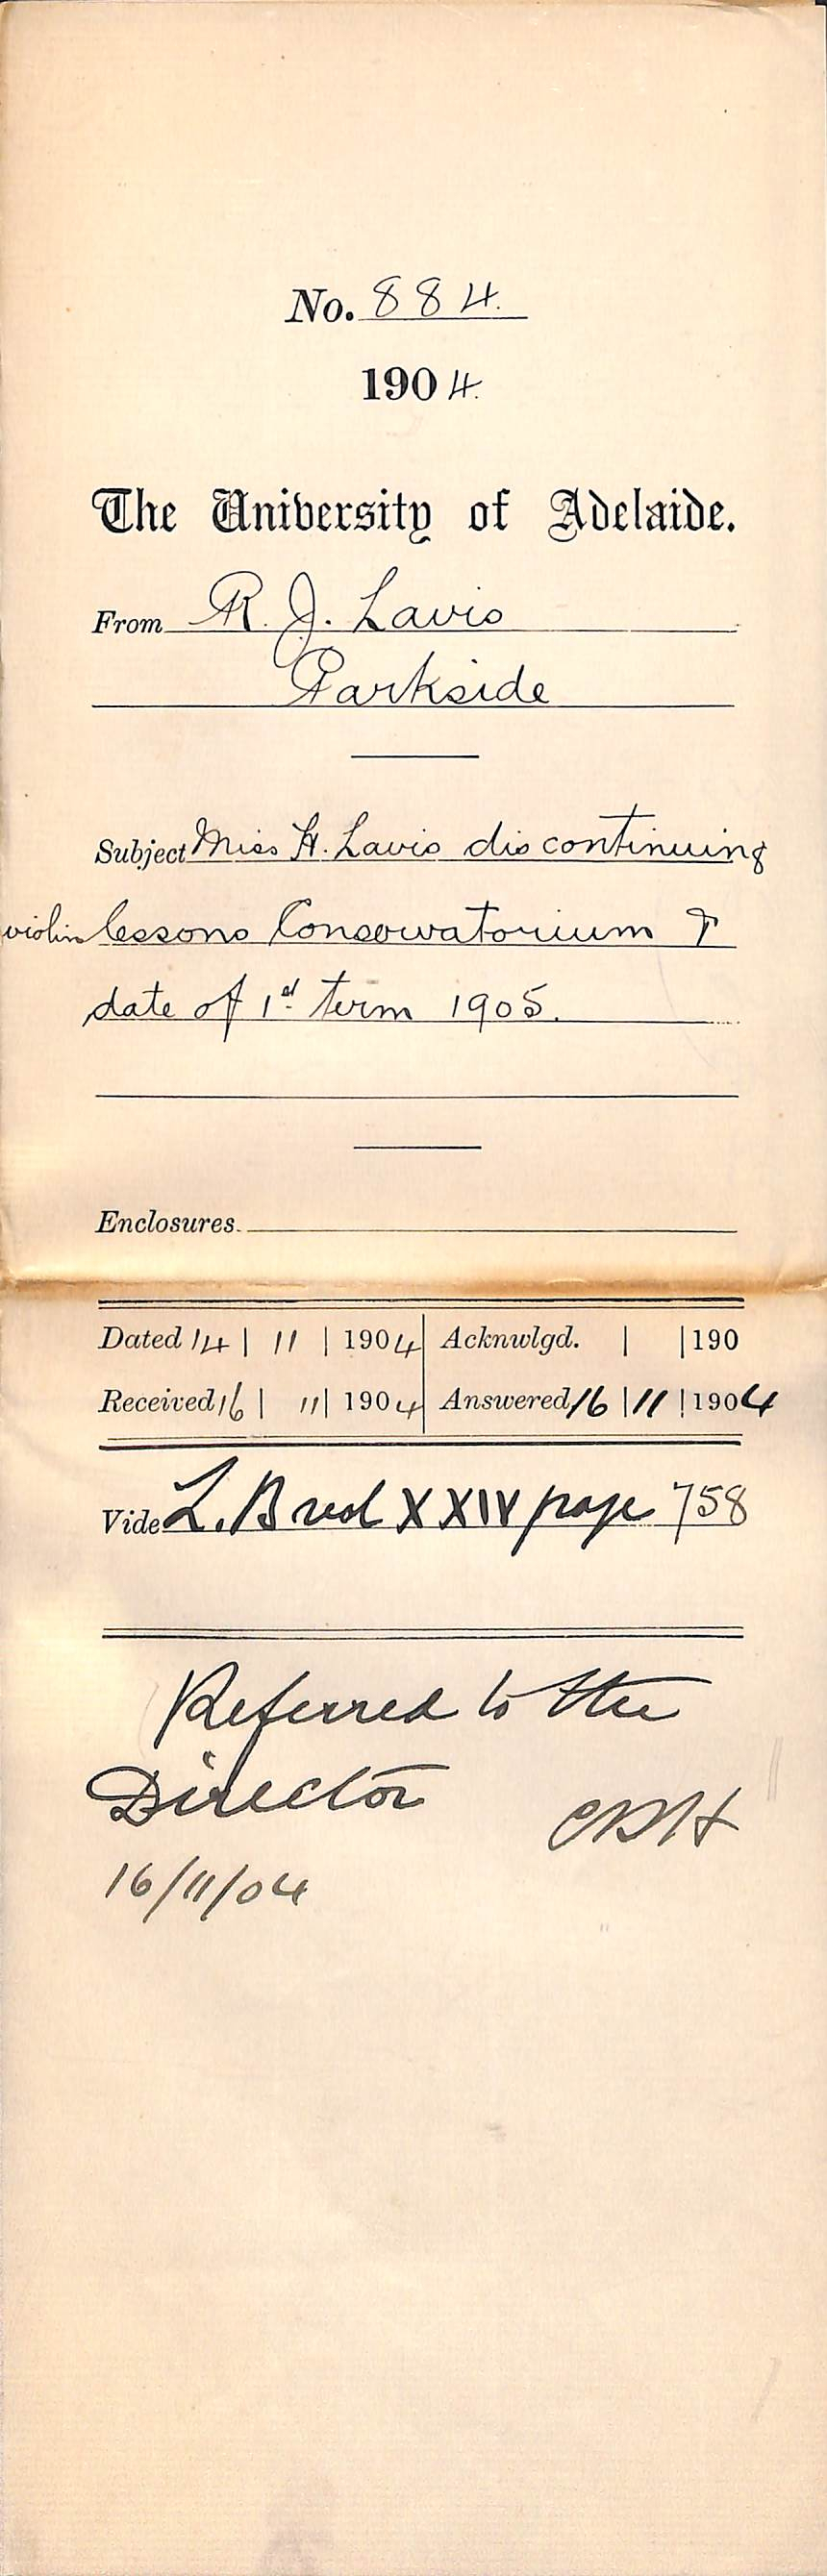 No. 884.
1904.
The University of Adelaide.
From R. J. Lavis
Parkside
Subject Miss H. Lavis discontinuing
violin lessons Conservatorium &
date of 1st term 1905.
Enclosures.
Dated 14 | 11 | 1904 Acknwlgd. | |190
Received 16 | 11 | 1904 Answered 16 | 11 | 1904
Vide L. B vol XXIV page 758
Referred to the
Director
CRH
16/11/04